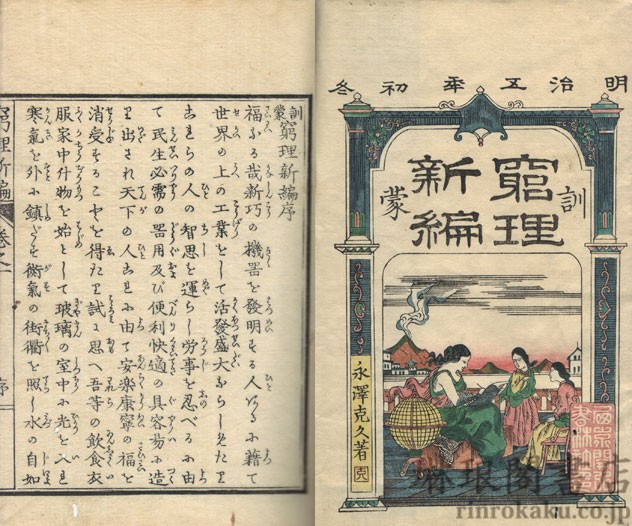 明治五秊初冬
訓蒙
窮理
新編
永澤克久著
訓蒙窮理新編序
福なる哉新巧の機器を發明する人あるに藉て
世界の上の工業として活發盛大ならしめたり
これらの人の智思を運らし労事を忍べるに由
て民生必需の器用及び便利快適の具容易に造
り出され天下の人これに由て安樂康寧の福を
消受することを得たり試に思へ吾等の飲食衣
服家中什物を始として玻璃の室中に光を入れ
寒氣を外に鎖ざし氣の街衢を照し水の自如
窮理新編 巻之一 序
琳琅閣書店
rinrokaku.co.jp